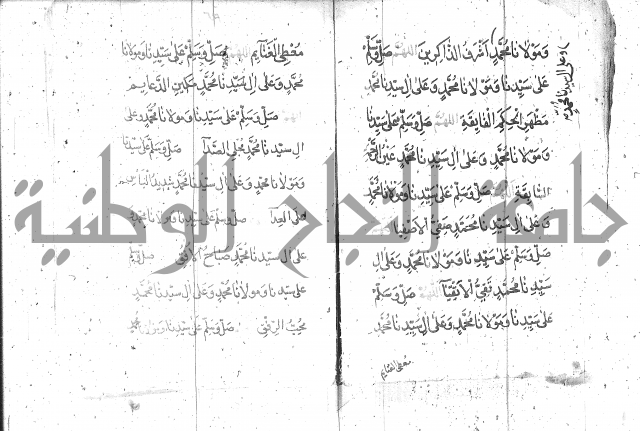 وعلى ال سيدنا محمد
ومولانا محمد اشرف الذاكرين اللهم صل وسلم
على سيدنا ومولانا محمد وعلى ال سيدنا محمد
مظهر الحكم الفايقة اللهم صل وسلم على سيدنا
ومولانا محمد وعلى ال سيدنا محمد عين
صل وسلم على سيدنا ومولانا محمد
وعلى ال سيدنا محمد صفي الاصفيا
صل وسلم على سيدنا ومولانا محمد وعلى ال
سيدنا محمد تقي الاتقيا صل وسلم
على سيدنا ومولانا محمد وعلى ال سيدنا محمد
معطي الغنايم
معطي الغنايم اللهم صل وسلم على سيدنا ومولانا
محمد وعلى ال سيدنا محمد
صل وسلم على سيدنا ومولانا محمد وعلى
ال سيدنا محمد صل وسلم على سيدنا
ومولانا محمد وعلى ال سيدنا محمد
صل وسلم على سيدنا ومولانا محمد
على ال سيدنا محمد صل وسلم
على سيدنا ومولانا محمد وعلى ال سيدنا محمد
صل وسلم على سيدنا ومولانا محمد
جامعة النجاح الوطنية